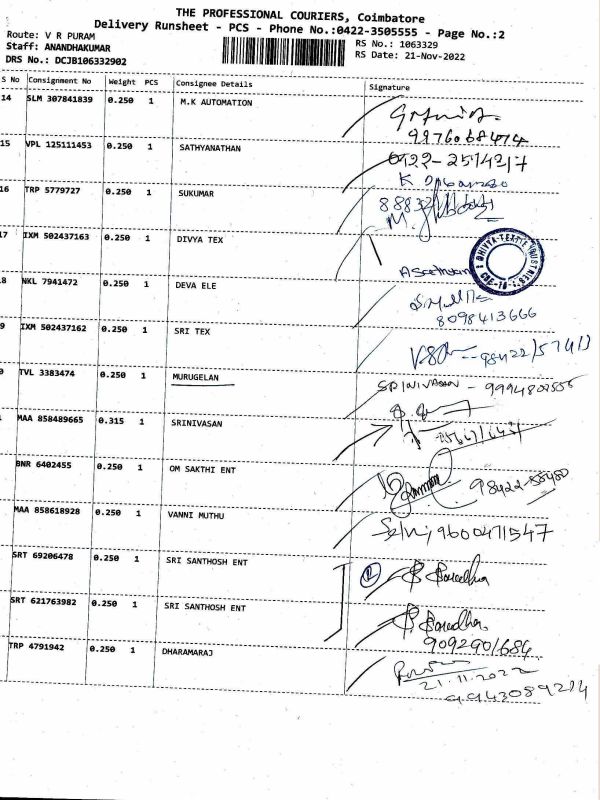 THE PROFESSIONAL COURIERS, Coimbatore
Delivery Runsheet - PCS - Phone No.:0422-3505555 - Page No.:2
Route: V R PURAM
Staff: ANANDHAKUMAR
DRS No.: DCJB106332902
RS No.: 1063329
RS Date: 21-Nov-2022
S No Consignment No Weight PCS Consignee Details Signature
14 SLM 307841839 0.250 1 M.K AUTOMATION
9976068474
15 VPL 125111453 0.250 1 SATHYANATHAN
16 TRP 5779727 0.250 1 SUKUMAR
17 IXM 502437163 0.250 1 DIVYA TEX
8 NKL 7941472 0.250 1 DEVA ELE
8098413666
9 IXM 502437162 0.250 1 SRI TEX
0 TVL 3383474 0.250 1 MURUGELAN
SRINIVASAN - 
MAA 858489665 0.315 1 SRINIVASAN
BNR 6402455 0.250 1 OM SAKTHI ENT
98422-58480
MAA 858618928 0.250 1 VANNI MUTHU
Selvi, 9600471547
SRT 69206478 0.250 1 SRI SANTHOSH ENT
SRT 621763982 0.250 1 SRI SANTHOSH ENT
9092901684
TRP 4791942 0.250 1 DHARAMARAJ
21.11.2022
9943089214